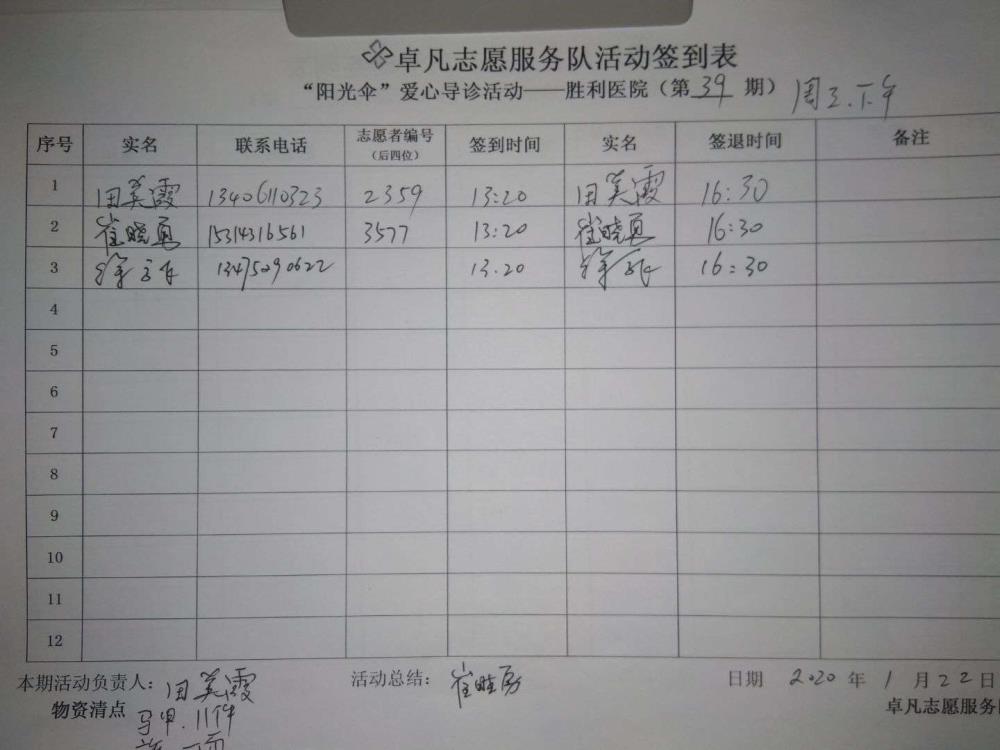 卓凡志愿服务队活动签到表
“阳光伞”爱心导诊活动——胜利医院（第 39 期） 周三.下午
序号 实名 联系电话 志愿者编号（后四位） 签到时间 实名 签退时间 备注
1 田美霞 13406110323 2359 13:20 田美霞 16:30
2 崔晓勇 15314316561 3577 13:20 崔晓勇 16:30
3 徐 13475290622 13.20 徐 16:30
4
5
6
7
8
9
10
11
12
本期活动负责人：田美霞 活动总结：崔晓勇 日期 2020 年 1 月 22 日
物资清点 马甲.11件 卓凡志愿服务